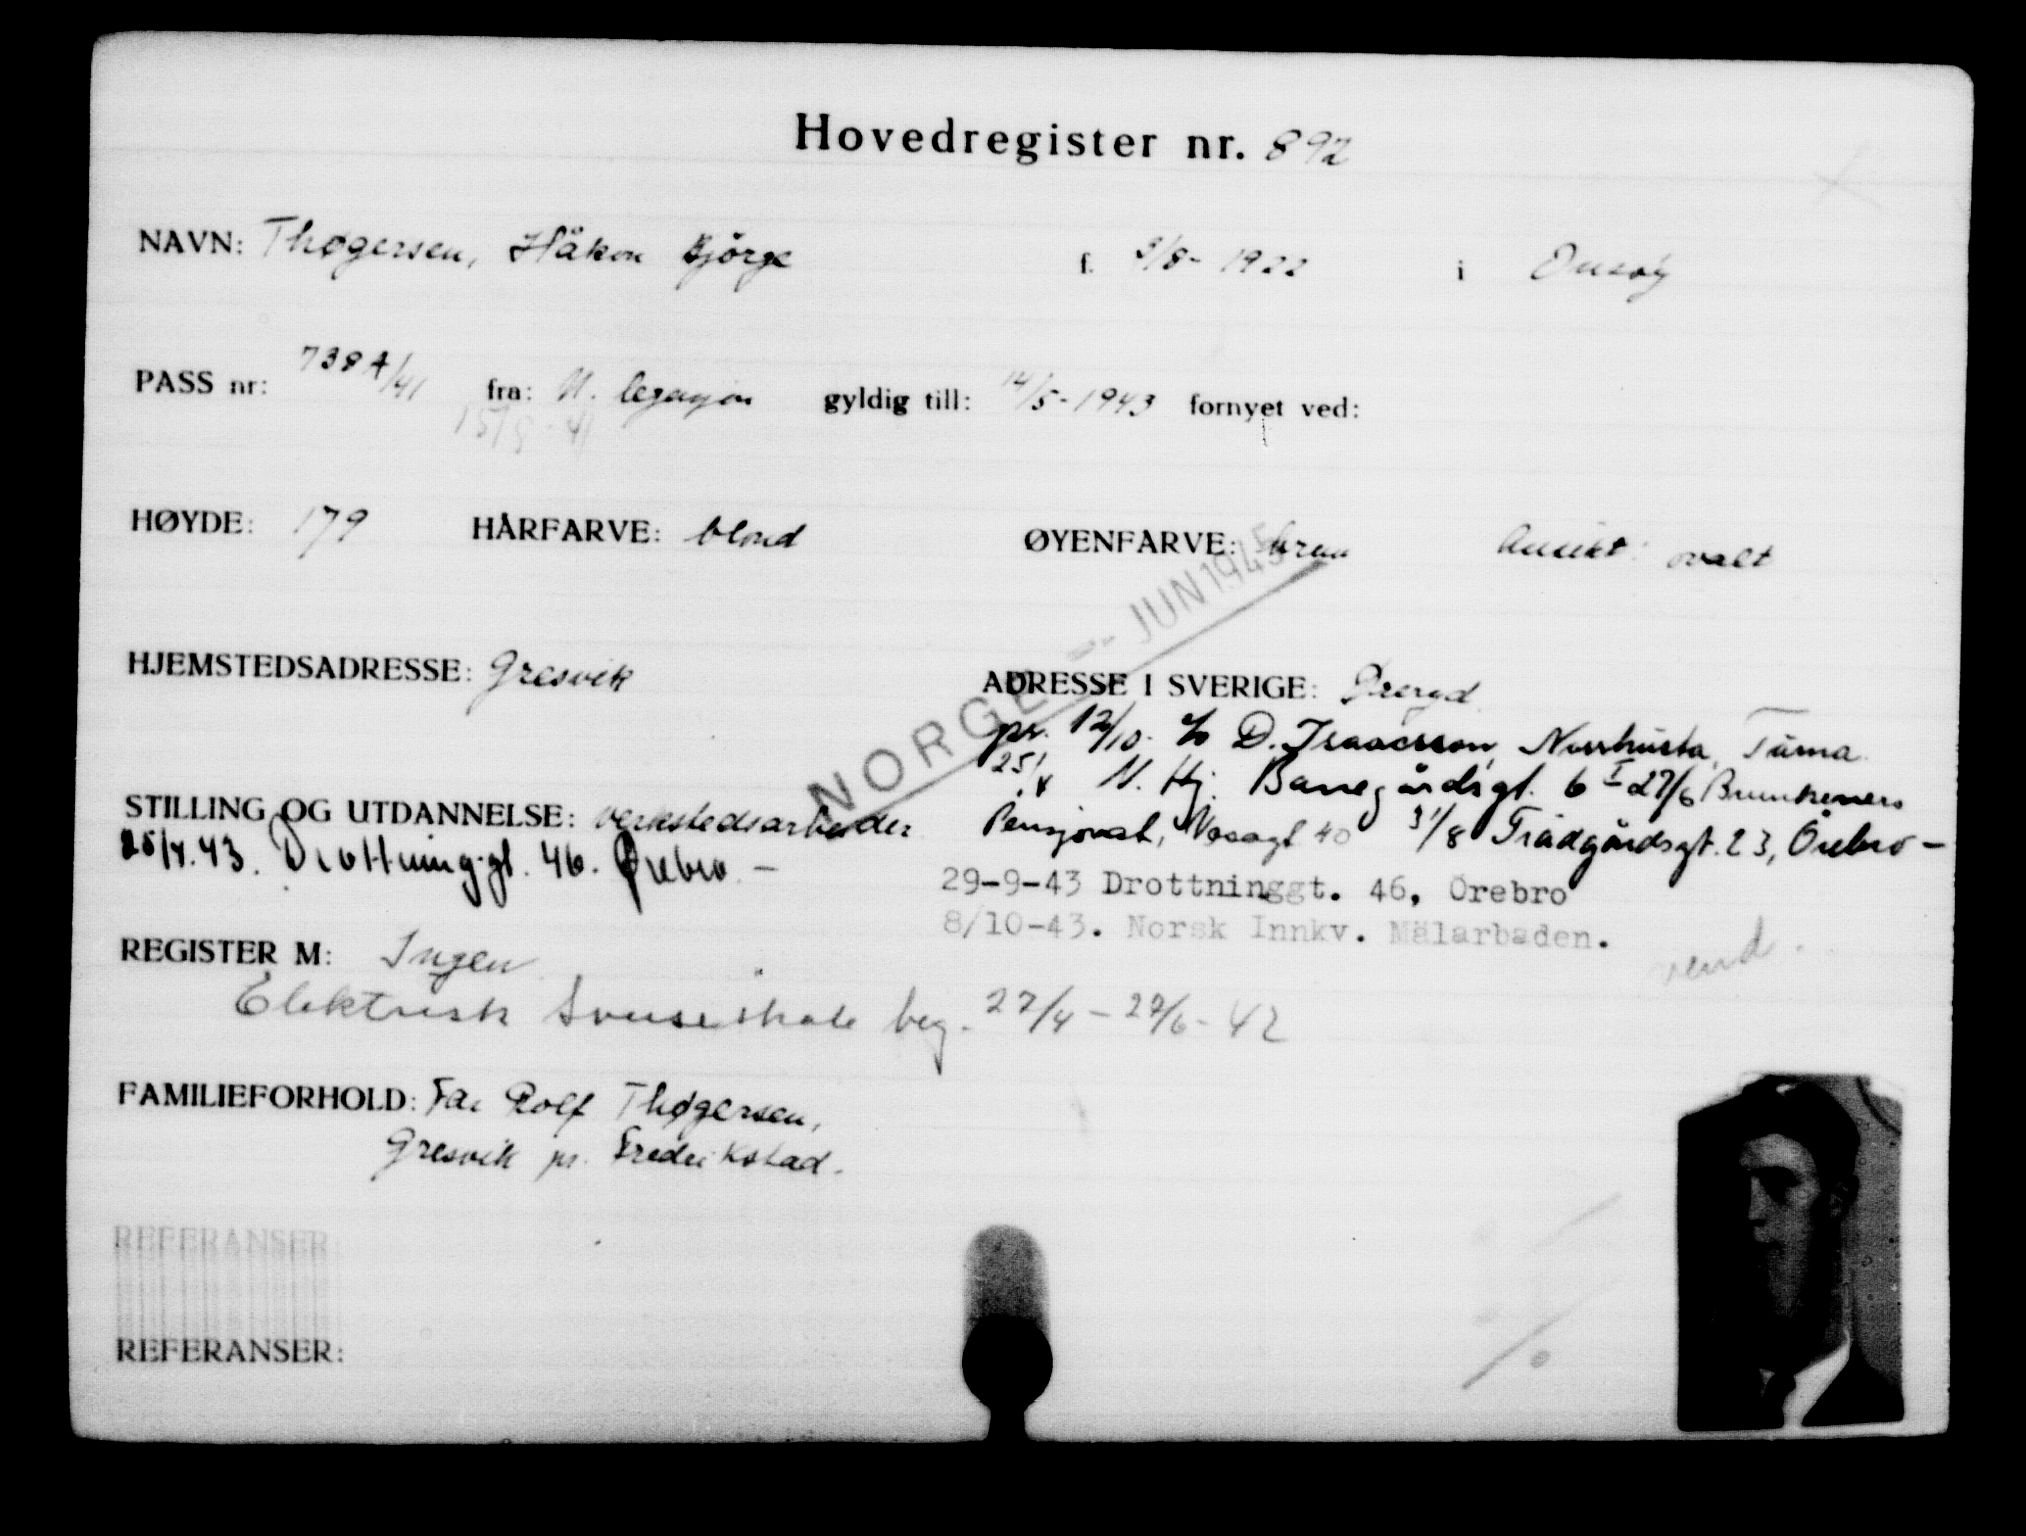 Hovedregister nr. 892
NAVN: Thøgersen, Håkon Bjørge f. 3/8- 1922 i Onsøy
PASS nr: 738 A/41 fra: N. legasjon gyldig till: 14/5-1943 fornyet ved:
15/8-41
HØYDE: 179 HÅRFARVE: blond ØYENFARVE: brun Ansikt: ovalt
NORGE - JUN 1945
HJEMSTEDSADRESSE: Gresvik ADRESSE I SVERIGE: Øreryd
pr. 12/10. c/o D. Isaacsson, Norrhusta, Tuma.
N. Hj. Banegårdsgt. 6 I 27/6 Brunkenens
STILLING OG UTDANNELSE: verkstedsarbeider Pensjonat, Vasagt 40 31/8 Trädgårdsgt. 23, Örebro -
25/4.43. Drottninggt. 46. Ørebro. -
29-9-43 Drottninggt. 46, Örebro
8/10-43. Norsk Innkv. Mälarbaden.
REGISTER M: Ingen vend.
Elektrisk Sveiseskole beg. 27/4 - 27/6 - 42
FAMILIEFORHOLD: Far Rolf Thøgersen,
Gresvik pr. Fredrikstad.
REFERANSER
REFERANSER: